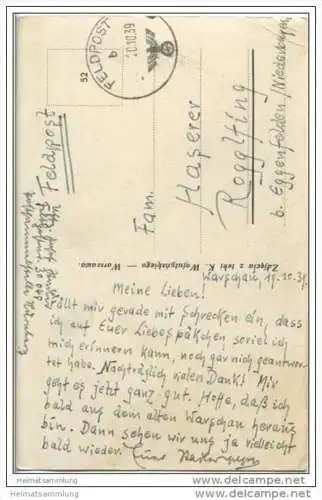 FELDPOST
b
20.10.39
52
Feldpost
Fam.
Haserer
Rogglfing
b. Eggenfelden/Niederbayern
Zdjęcia z teki K. Wojutyńskiego — Warszawa.
Warschau, 19.10.39.
Meine Lieben!
Fällt mir gerade mit Schrecken ein, dass
ich auf Euer Liebespäkchen, soviel ich
mich erinnern kann, noch gar nicht geantwor-
tet habe. Nachträglich vielen Dank! Mir
geht es jetzt ganz gut. Hoffe, daß ich
bald aus dem alten Warschau heraus
bin. Dann sehen wir uns ja vielleicht
bald wieder. Euer
Heimatsammlung
Heimatsammlung.de